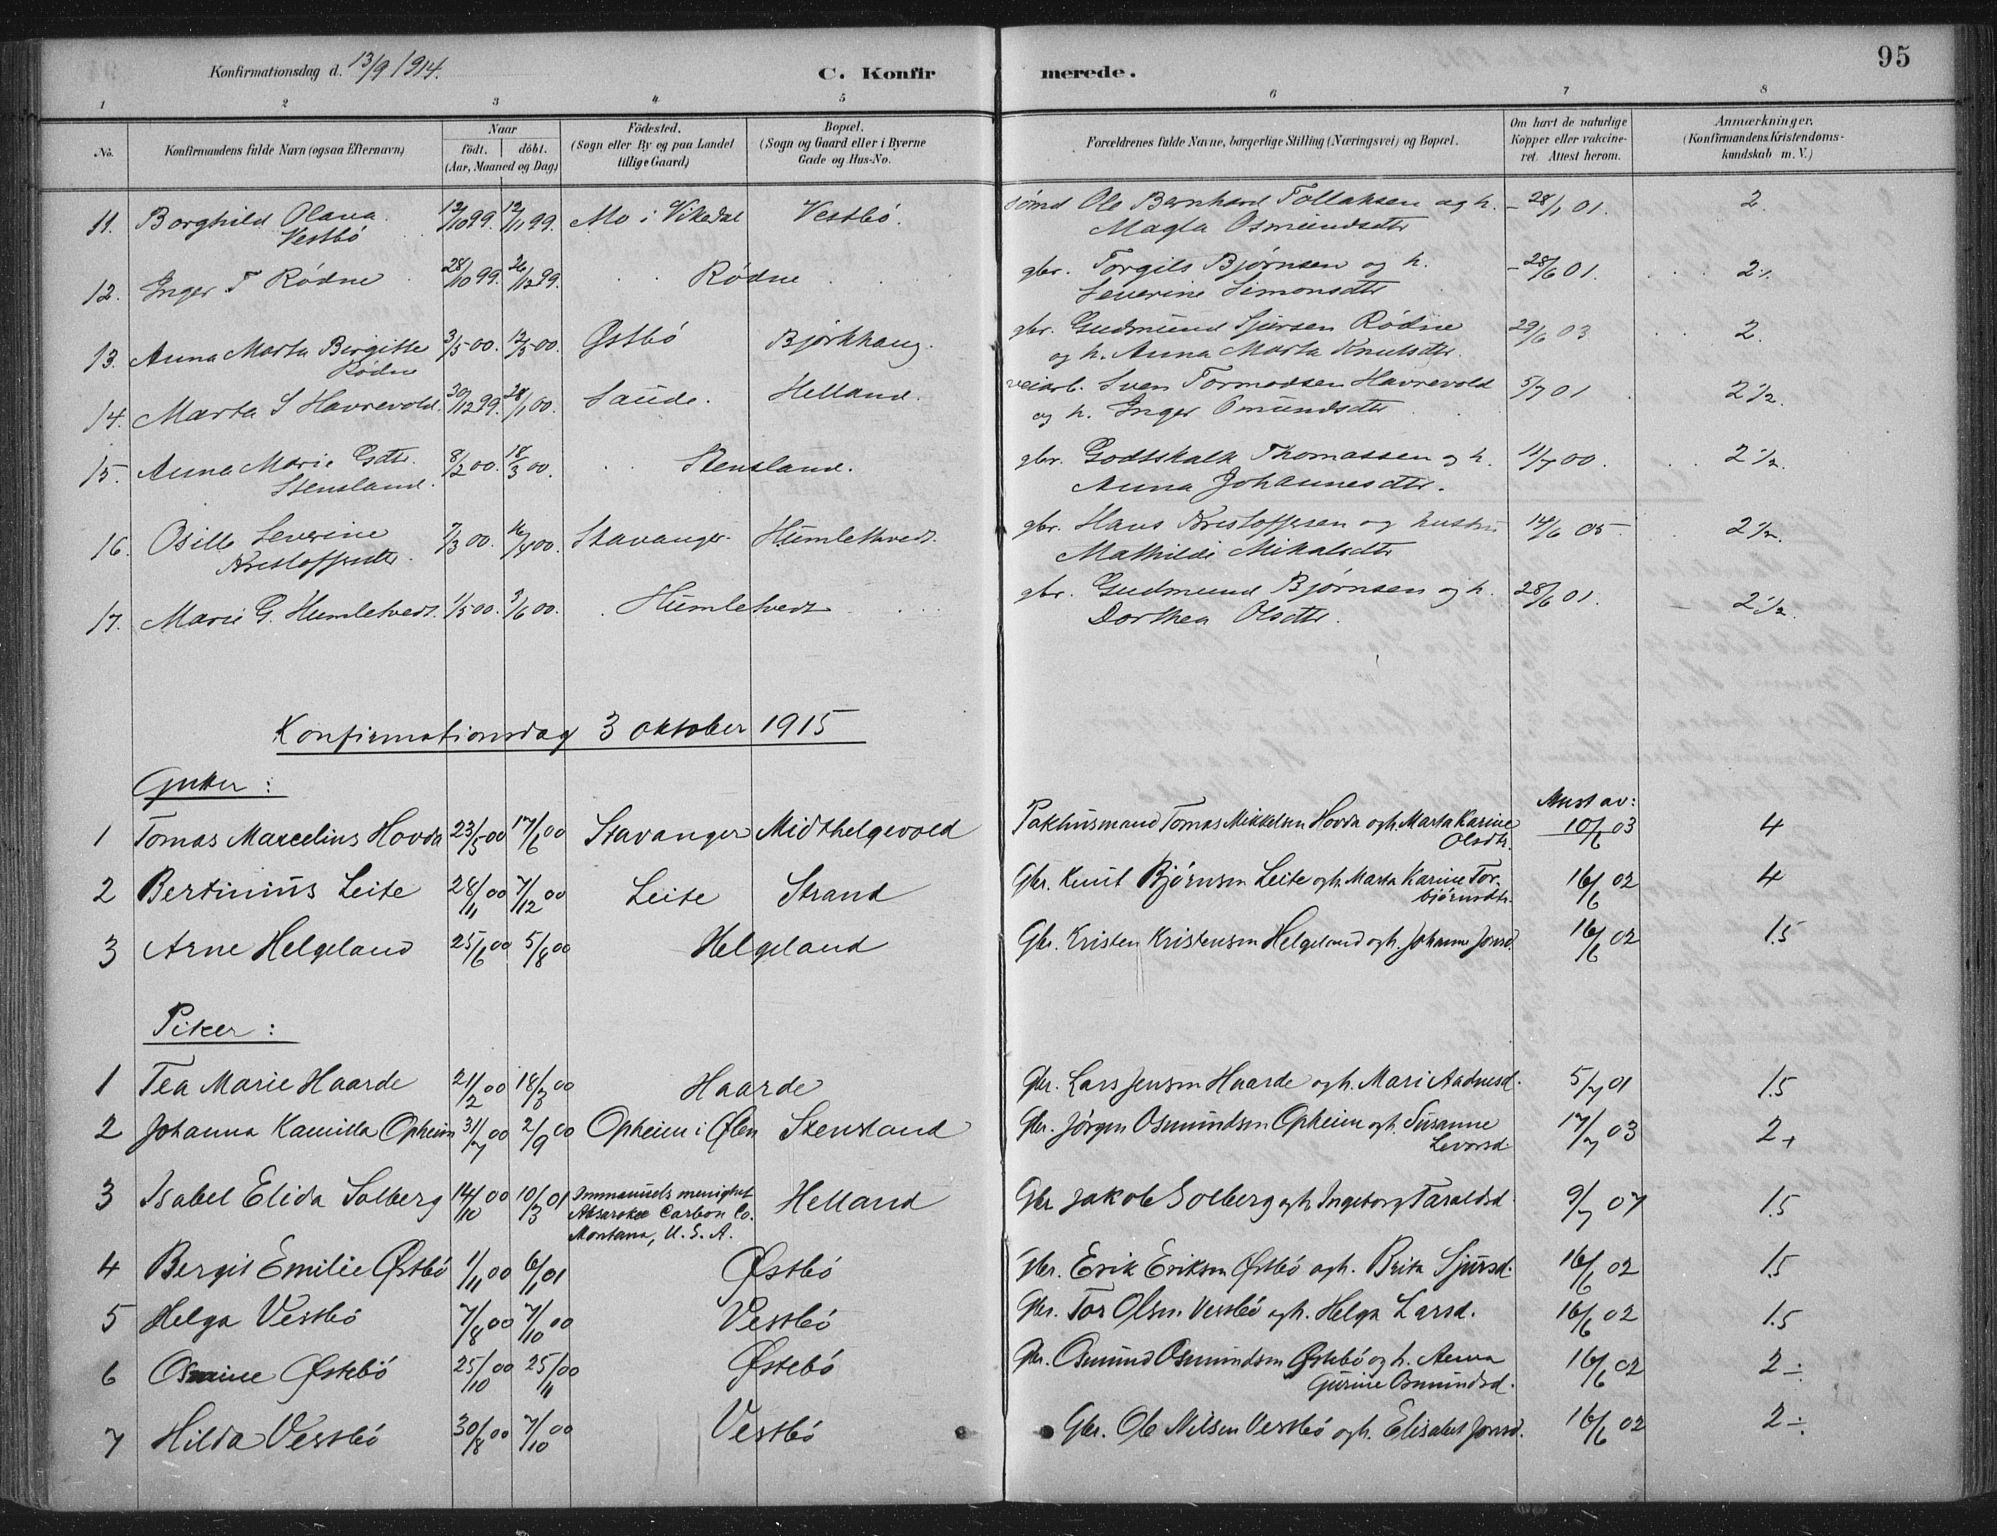 Konfirmationsdag d. 13/9 1914.
C. Konfirmerede.
95
1 2 3 4 5 6 7 8
No.
Konfirmandens fulde Navn (ogsaa Efternavn)
Naar
födt. döbt.
(Aar, Maaned og Dag)
Födested.
(Sogn eller By og paa Landet
tillige Gaard)
Bopæl.
(Sogn og Gaard eller i Byerne
Gade og Hus-No.
Forældrenes fulde Navne, borgerlige Stilling (Næringsvei) og Bopæl.
Om havt de naturlige
Kopper eller vakcine-
ret. Attest herom.
Anmærkninger.
(Konfirmandens Kristendoms-
kundskab m. V.)
11. Borghild Olava 12/10 99. 12/11 99. Mo i Vikedal Vestbö. Ole Bernhard Tollaksen og h. 28/1 01. 2.
Vestbö Magla Osmundsdtr
12. Inger T Rødne 28/10 99. 26/12 99. Rødne gbr. Torgils Bjørnsen og h. 28/6 01. 2 ⁒
Severine Simonsdtr
13. Anna Marta Bergitte 3/5 00. 12/5 00. Østbö Bjørkhaug. gbr. Gudmund Sjursen Rødne 29/6 03 2.
Rødne og h. Anna Marta Knutsdtr.
14. Marta S Havrevold. 30/12 99. 28/1 00. Saude. Helland. veiarb. Sven Tormodsen Havrevold 5/7 01 2 1/2.
og h. Inger Omundsdtr
15. Anna Marie Gdtr. 8/2 00. 18/3 00. Stensland. gbr. Godtskalk Thomassen og h. 11/7 00. 2 1/2
Stensland. Anna Johannesdtr.
16. Osille Severine 7/3 00. 16/4 00. Stavanger. Humletvedt. gbr. Hans Kristoffersen og hustru 14/6 05. 2 1/2.
Kristoffersdtr. Mathilde Mikalsdtr
17. Marie G. Humletvedt. 1/5 00. 3/6 00. Humletvedt gbr. Gudmund Bjørnsen og h. 28/6 01. 2 1/2
Dorthea Olsdtr.
Konfirmationsdag 3 oktober 1915
Gutter :
Attest av:
1 Tomas Marcelius Hovda 23/5 00 17/6 00 Stavanger Midthelgevold Pakhusmand Tomas Mikkelsen Hovda og h. Marta Karine 10/6 03 4
Olsdtr.
2 Bertinius Leite 28/11 00 7/12 00 Leite Strand Gbr. Knut Bjørnsen Leite og h. Marta Karine Tor- 16/6 02 4
bjørnsdtr.
3 Arne Helgeland 25/6 00 5/8 00 Helgeland Gbr. Kristen Kristensen Helgeland og h. Johanne Jonsd. 16/6 02 1.5
Piker :
1 Tea Marie Haarde 21/2 00 18/3 00 Haarde Gbr. Lars Jensen Haarde og h. Mari Aadnesd. 5/7 01 1.5
2 Johanna Kamilla Opheim 31/7 00 2/9 00 Opheim i Ølen Stensland Gbr. Jørgen Osmundsen Opheim og h. Susanne 17/7 03 2+
Levorsd.
3 Isabel Elida Solberg 14/10 00 10/3 01 Immanuels menighet Helland Gbr Jakob Solberg og h Ingeborg Taraldsd. 9/7 07 1.5
Absarokee Carbon Co.
Montana, U. S. A.
4 Bergit Emilie Østbö 1/11 00 6/1 01 Østbö Gbr. Erik Eriksen Østbö og h. Brita Sjursd. 16/6 02 1.5
5 Helga Vestbö 7/8 00 7/10 00 Vestbö Gbr. Tor Olsen Vestbö og h. Helga Larsd. 16/6 02 1.5
6 Osmine Østebö 25/10 00 25/11 00 Østebö Gbr. Osmund Osmundsen Østebö og h. Anna 16/6 02 2 ÷
Gurine Osmundsd.
7 Hilda Vestbö 30/8 00 7/10 00 Vestbö Gbr. Ole Nilsen Vestbö og h. Elisabet Jonsd. 16/6 02 2 ÷